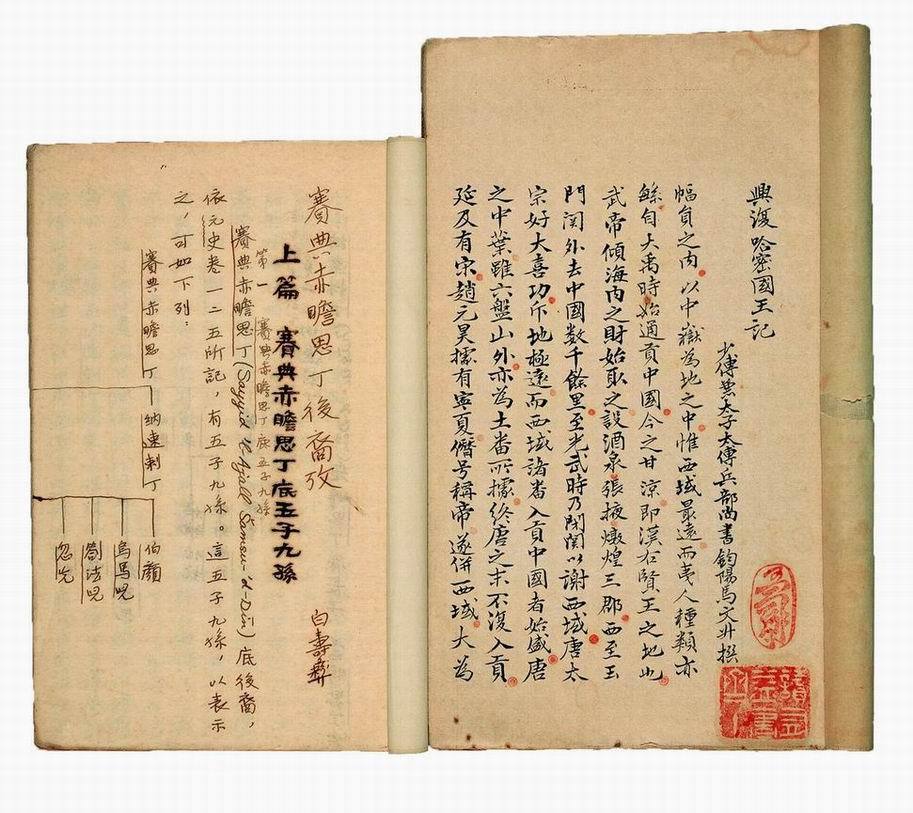 興復哈密國王記
少傅兼太子太傅兵部尚書鈞陽馬文升撰
幅員之內以中嶽為地之中惟西域最遠而夷人種類亦
緐自大禹時始通貢中國今之甘涼即漢右賢王之地也
武帝傾海內之財始取之設酒泉張掖燉煌三郡西至玉
門関外去中國数千餘里至光武時乃閉関以謝西域唐太
宗好大喜功斥地極遠而西域諸畨入貢中國者始盛唐
之中葉雖六盤山外亦為土畨所據終唐之末不復入貢
延及有宋趙元昊據有寧夏僭号稱帝遂併西域大為
賽典赤瞻思丁後裔攷
白壽彝
上篇 賽典赤瞻思丁底五子九孫
第一 賽典赤瞻思丁底五子九孫
賽典赤瞻思丁(Sayyid 'l-Ajall Šamsu 'd-Din)底後裔，
依元史卷一二五所記，有五子九孫。這五子九孫，以表示
之，可如下列：
賽典赤瞻思丁
納速剌丁
伯顏
烏馬兒
荀法兒
忽先